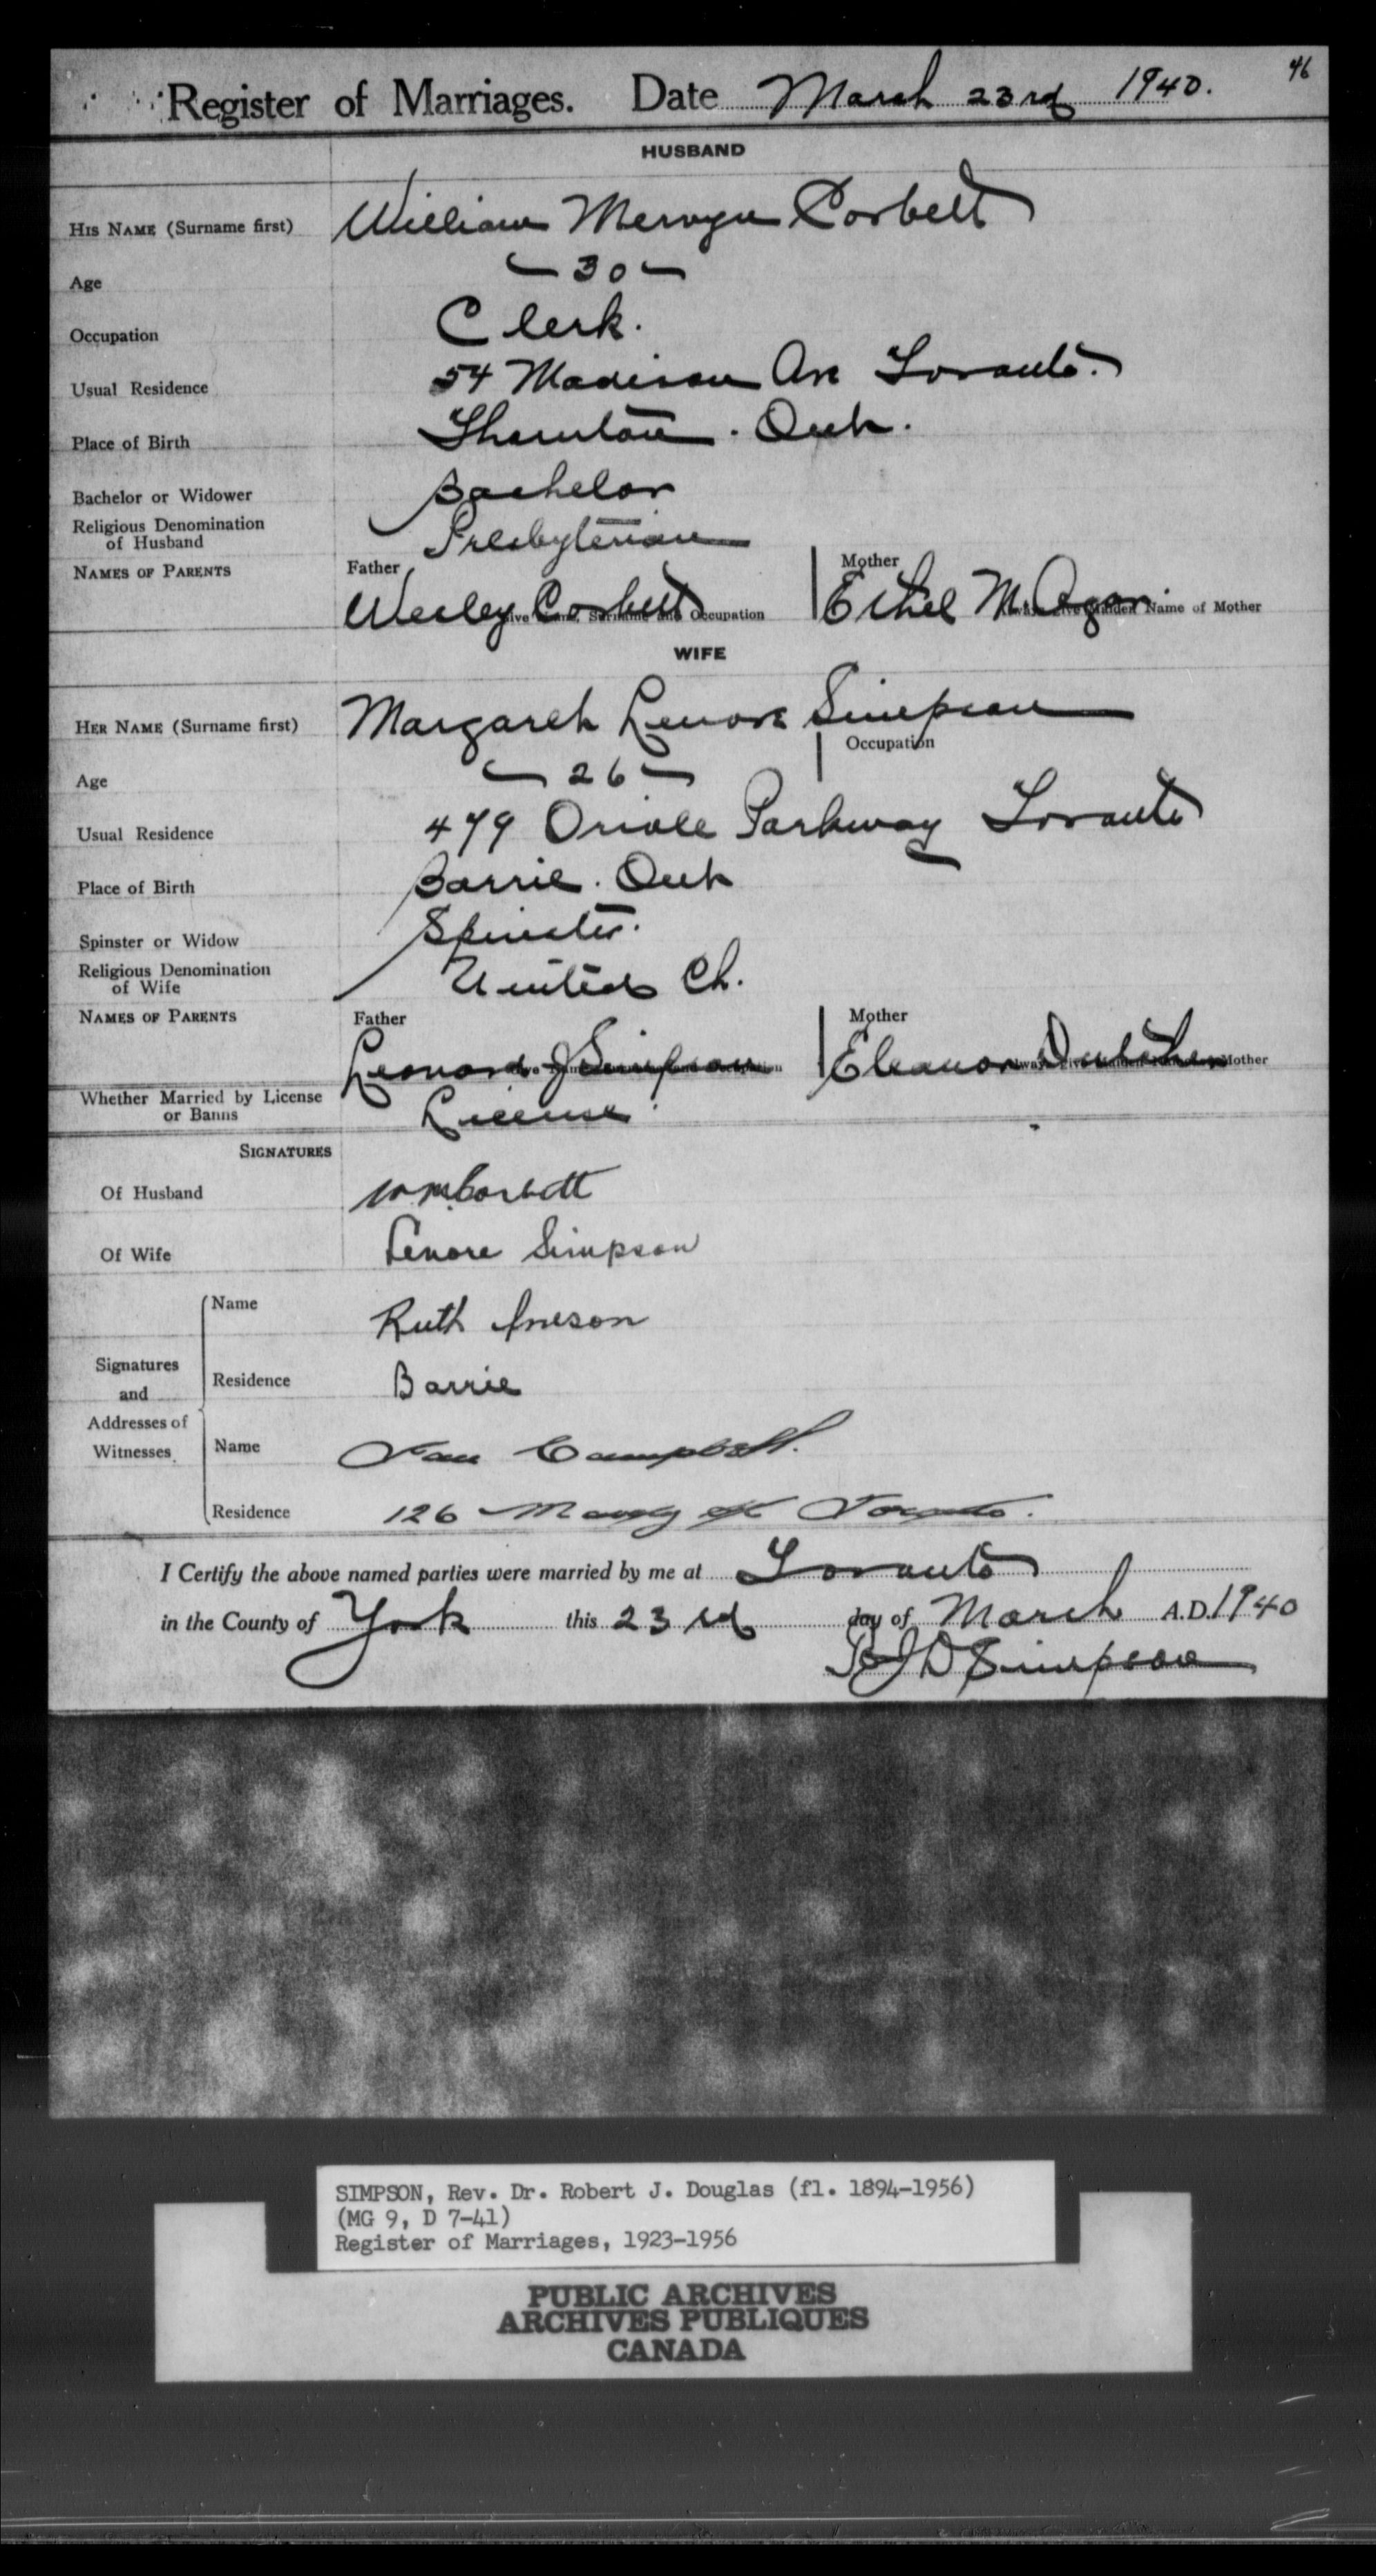 46
Register of Marriages. Date March 23rd 1940.
HUSBAND
HIS NAME (Surname first) William Mervyn Corbett
Age 30
Occupation Clerk.
Usual Residence 54 Madison Ave Toronto.
Place of Birth Thornton. Ont.
Bachelor or Widower Bachelor
Religious Denomination of Husband Presbyterian
NAMES OF PARENTS Father Mother
Wesley Corbett Ethel M.
Occupation Name of Mother
WIFE
HER NAME (Surname first) Margaret Lenore Simpson
Occupation
Age 26
Usual Residence 479 Oriole Parkway Toronto
Place of Birth Barrie. Ont
Spinster or Widow Spinster.
Religious Denomination of Wife United Ch.
NAMES OF PARENTS Father Mother
Leonard J Simpson Eleanor
Mother
Whether Married by License or Banns License
SIGNATURES
Of Husband W M Corbett
Of Wife Lenore Simpson
Name Ruth
Signatures and Addresses of Witnesses
Residence Barrie
Name Campbell.
Residence 126 St Toronto.
I Certify the above named parties were married by me at Toronto
in the County of York this 23rd day of March A.D. 1940
R J D Simpson
SIMPSON, Rev. Dr. Robert J. Douglas (fl. 1894-1956)
(MG 9, D 7-41)
Register of Marriages, 1923-1956
PUBLIC ARCHIVES
ARCHIVES PUBLIQUES
CANADA